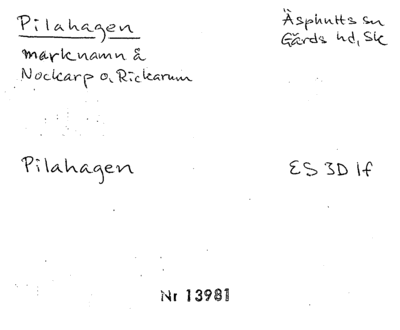 Pilahagen
Äsphults sn
marknamn å
Gärds hd, Sk
Nockarp o. Rickarum
Pilahagen
ES 3D 1f
Nr 13981